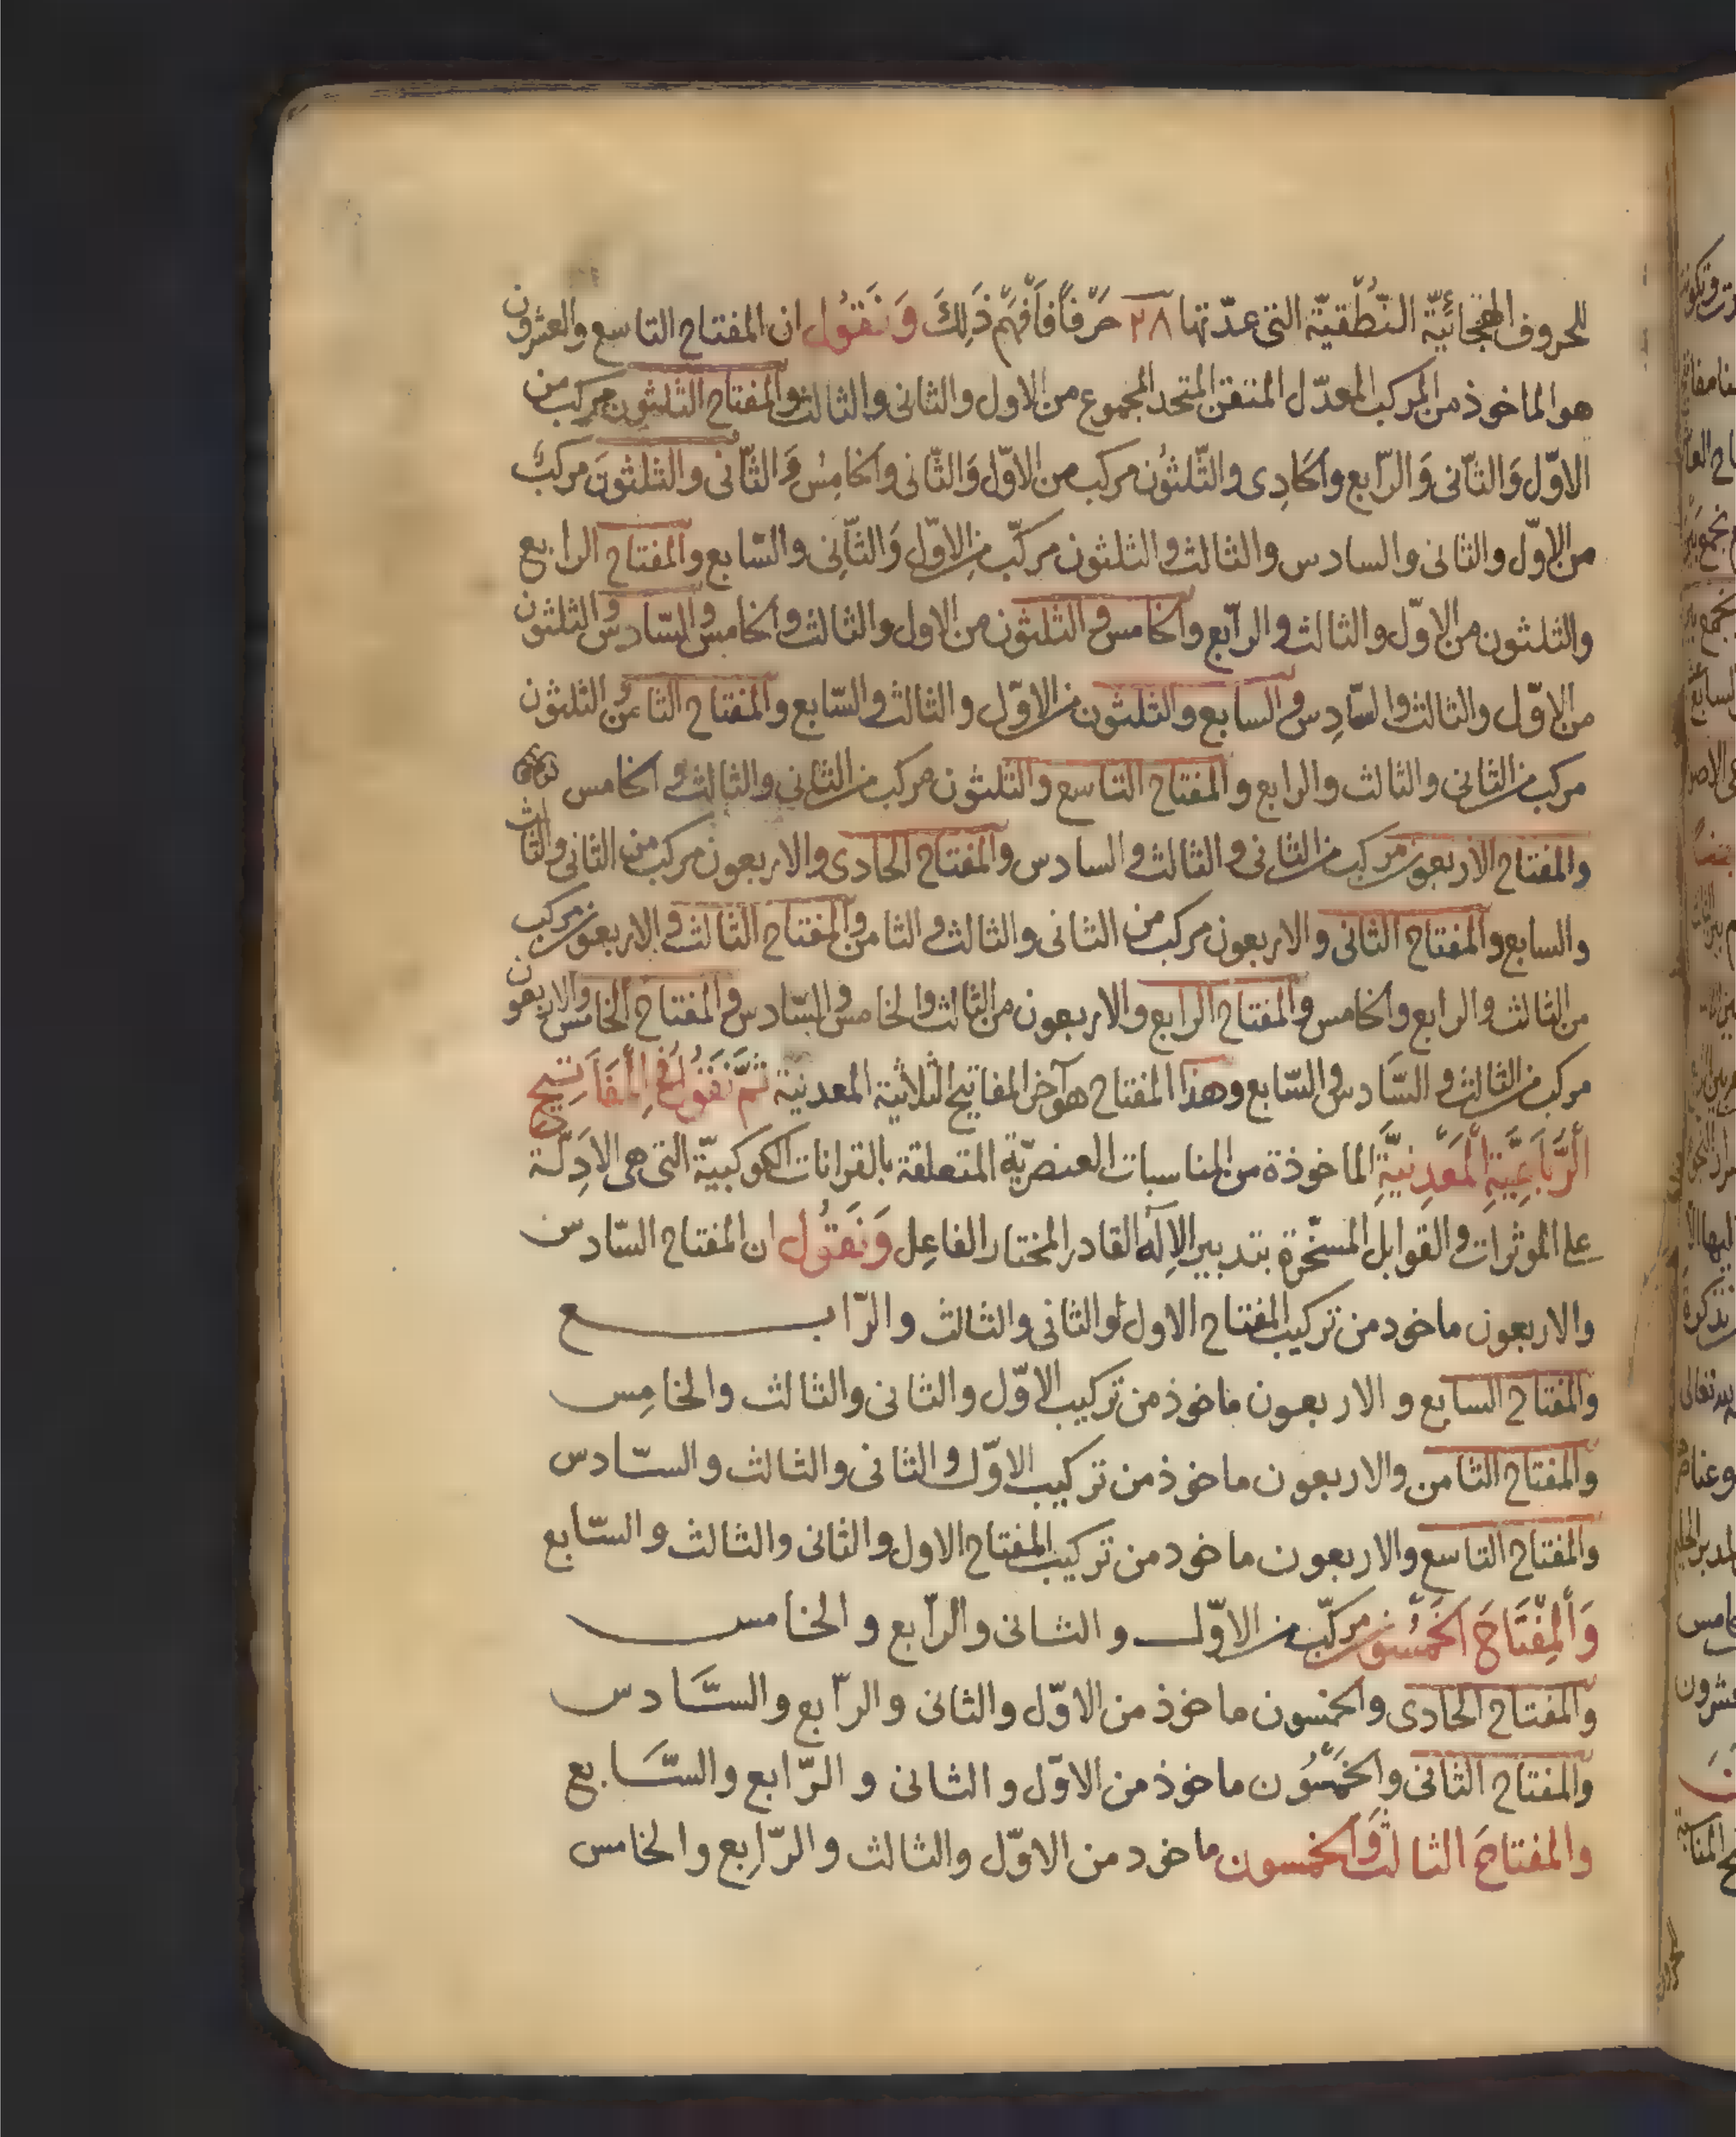 للحروف الهجائيّة النّطقيّة التى عدّتها ٢٨ حَرْفاً فَافْهَمْ ذَلِكَ وَنَقُول ان المفتاح التاسع والعشرون
هو الماخوذ من المركب المعدّل المتقن المتحد المجموع من الاول والثانى والثالث والمفتاح الثلثون مركب من
الاوّل وَالثّانى وَالرّابع والحادِى والثّلثُون مركب من الاوّل وَالثّانى والخامِس وَالثّانى والثلثونَ مركبٌ
من الاوّل والثانى والسادس والثالث والثلثون مركّب من الاوّل وَالثّانِى والسّابع والمفتاح الرابع
والثلثون من الاوّل والثالث والرابع والخامس والثلثون من الاول والثالث والخامس والسّادس والثلثون
من الاوّل والثالث والسّادِس والسابع والثلثون من الاوّل والثالث والسّابع والمفتاح الثامن والثلثون
مركب من الثانى والثالث والرابع والمفتاح التاسع والثلثون مركب من الثانى والثالث والخامس
والمفتاح الاربعون مركب من الثانى والثالث والسادس والمفتاح الحادى والاربعون مركب من الثانى والثالث
والسابع والمفتاح الثانى والاربعون مركب من الثانى والثالث والثامن والمفتاح الثالث والاربعون مركب
من الثالث والرابع والخامس والمفتاح الرابع والاربعون من الثالث والخامس والسّادس والمفتاح الخامس والاربعون
مركب من الثالث والسَّادس والسّابع وهذا المفتاح هو آخر المفاتيح الثلاثية المعدنية ثُمَّ نَقُولُ فِى الْمَفَاتِيحِ
الرُّبَاعِيَّةِ الْمَعْدِنِيَّةِ الماخوذة من المناسبات العنصريّة المتعلقة بالقرانات الكوكبيّة التى هى الادِلّة
على الموثرات والقوابل المسخّرة بتدبير الاِلَه القادر المختار الفاعِل وَنَقُول ان المفتاح السّادس
والاربعون ماخود من تركيب المفتاح الاول والثانى والثالث والرّابع
والمفتاح السابع والاربعون ماخوذ من تركيب الاوّل والثانى والثالث والخامِس
والمفتاح الثامن والاربعون ماخوذ من تركيب الاوّل والثانى والثالث والسّادس
والمفتاح التاسع والاربعون ماخود من تركيب المفتاح الاول والثانى والثالث والسّابع
وَالْمِفْتَاحَ الخَمْسُون مركّب من الاوّل والثانى والرابع والخامس
والمفتاح الحادى والخمسون ماخوذ من الاوّل والثانى والرّابع والسَّادس
والمفتاح الثانى والخَمْسُون ماخوذ من الاوّل والثانى والرّابع والسَّابع
والمفتاحَ الثالث وَالخمسون ماخود من الاوّل والثالث والرّابع والخامس